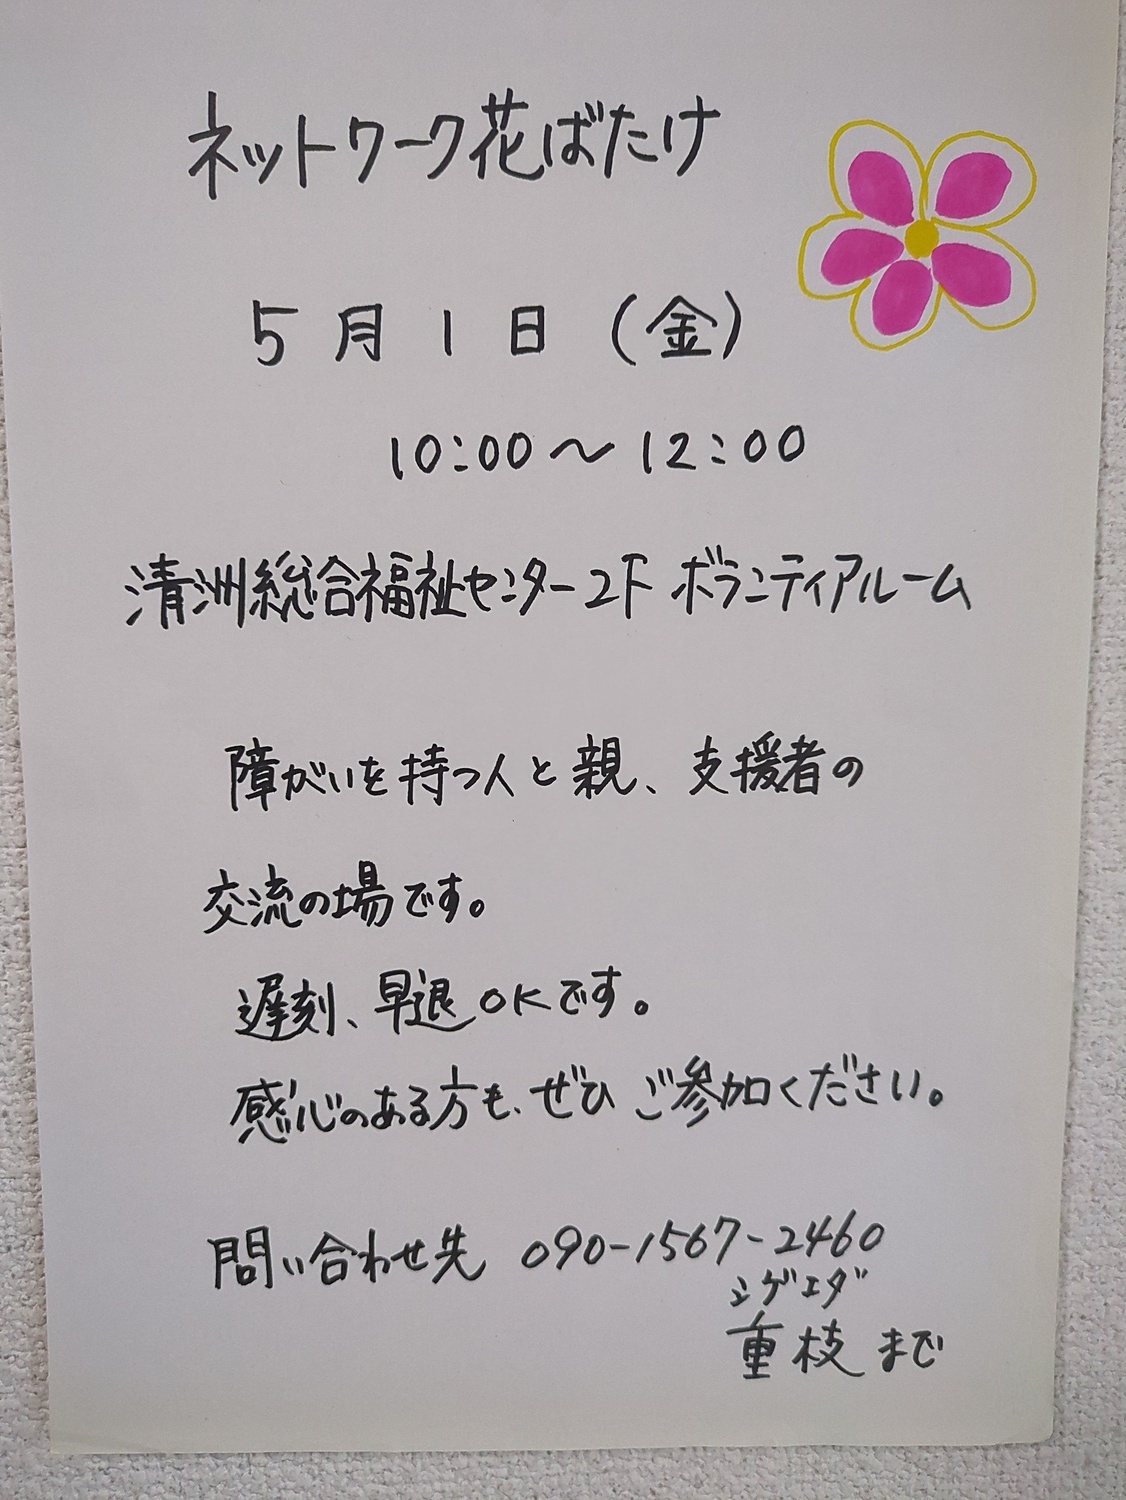 ネットワーク花ばたけ
5月1日(金)
10:00〜12:00
清洲総合福祉センター2F ボランティアルーム
障がいを持つ人と親、支援者の
交流の場です。
遅刻、早退OKです。
感心のある方も、ぜひご参加ください。
問い合わせ先 090-1567-2460
シゲエダ
重枝まで